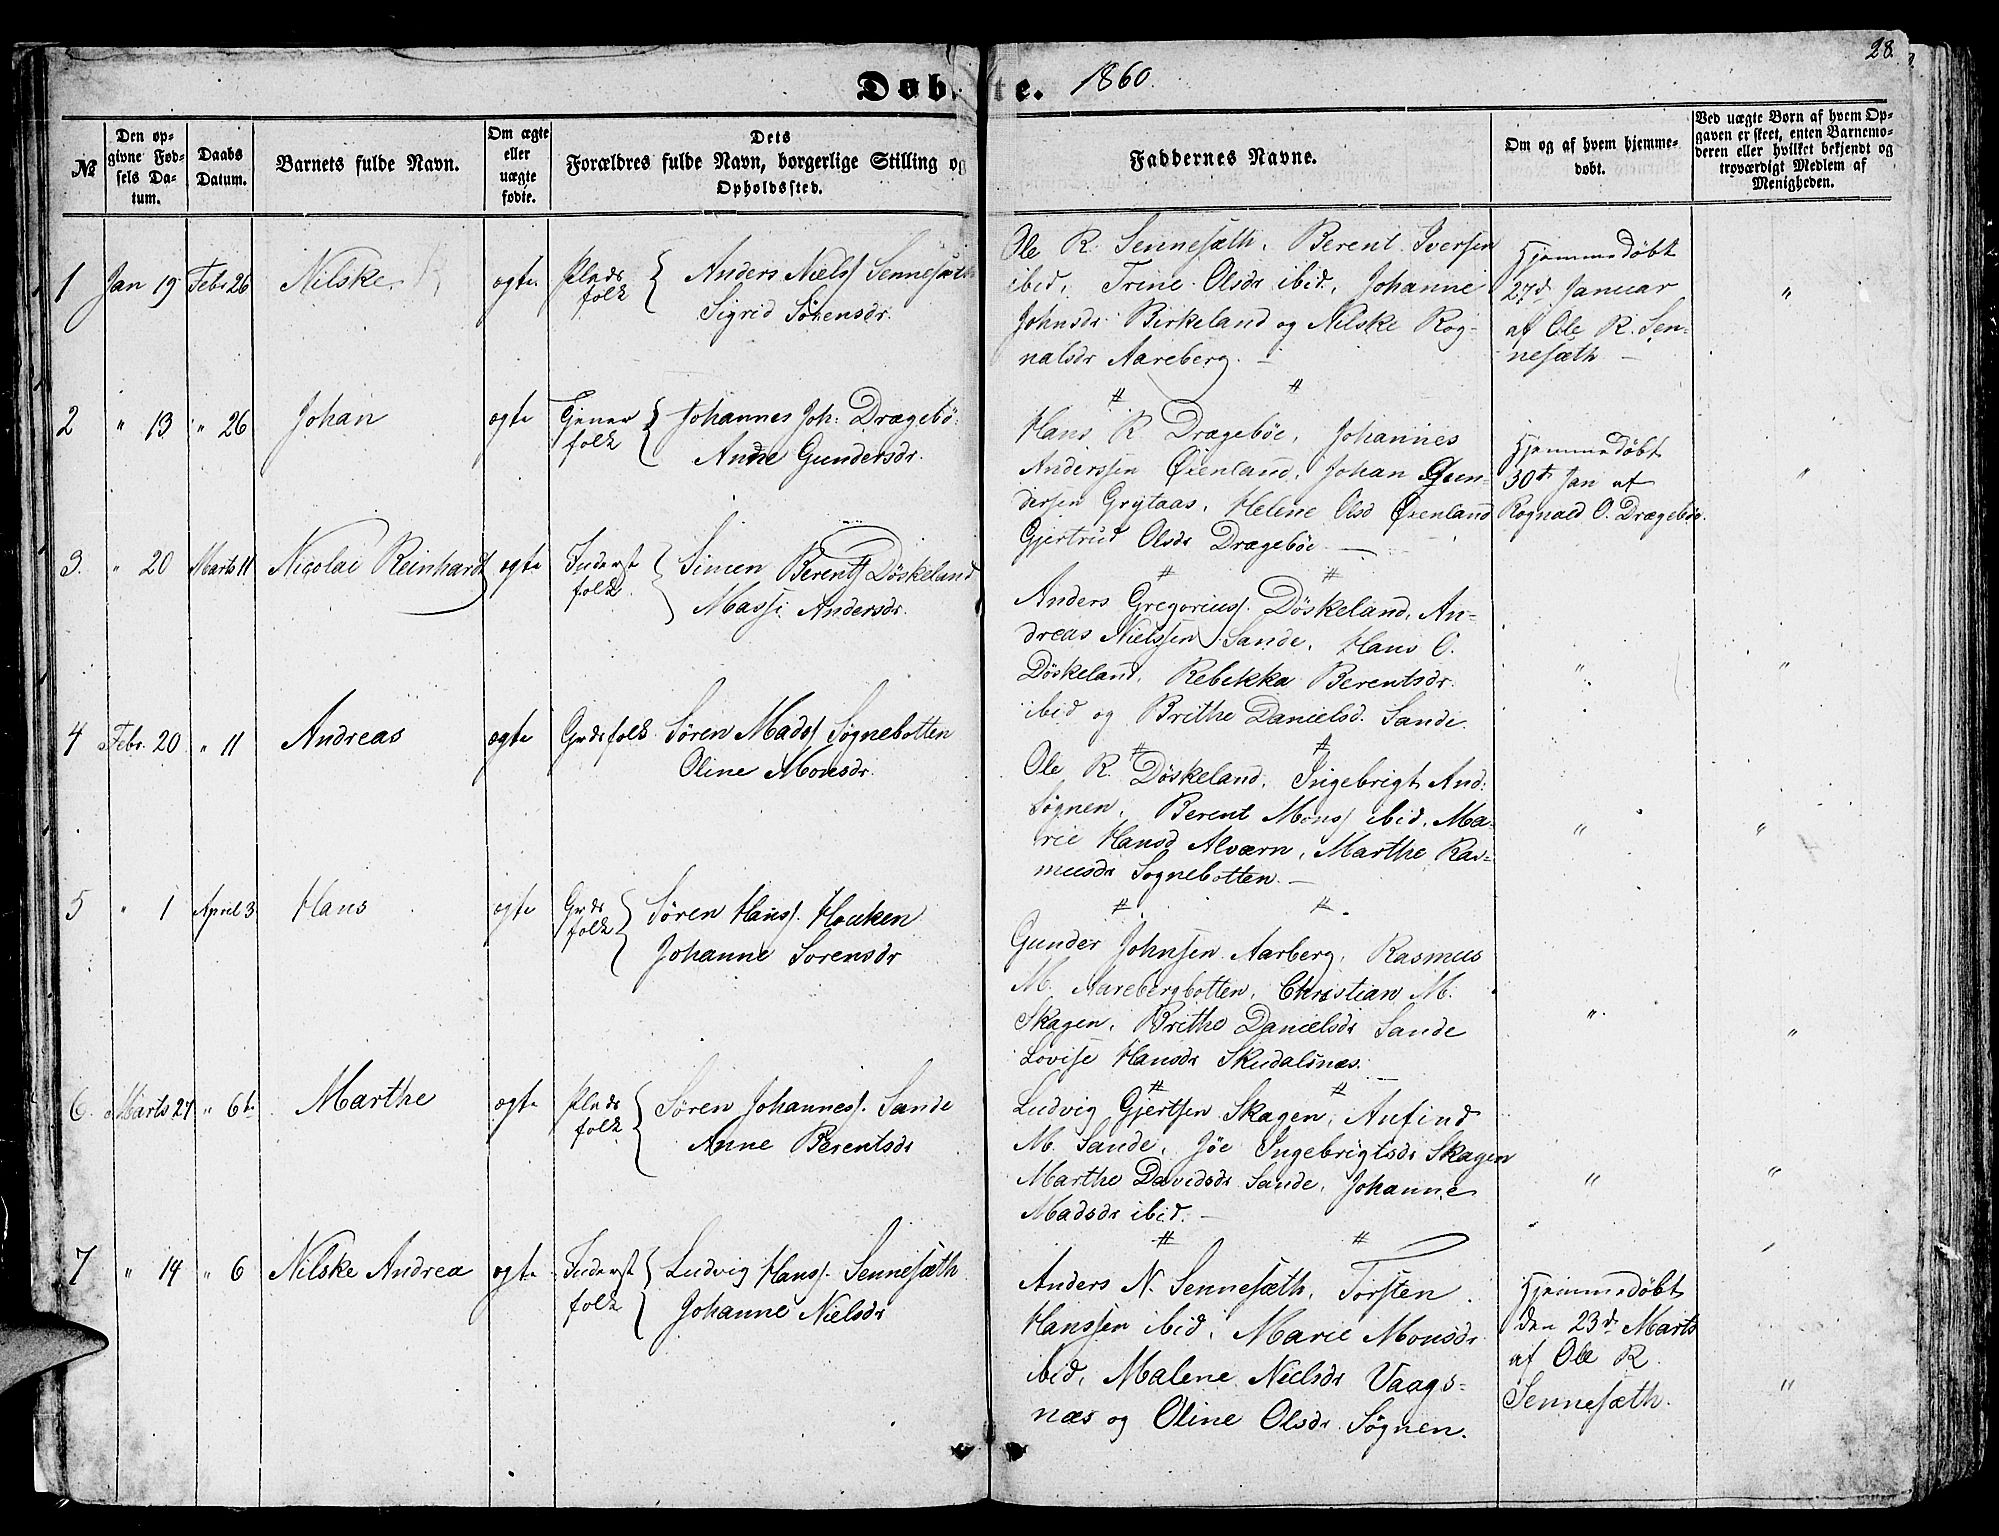 28.
Døbte. 1860.
№
Den opgivne Fødsels Datum.
Daabs Datum.
Barnets fulde Navn.
Om ægte eller uægte fødte.
Dets Forældres fulde Navn, borgerlige Stilling og Opholdssted.
Faddernes Navne.
Om og af hvem hjemmedøbt.
Ved uægte Børn af hvem Opgaven er skeet, enten Barnemoderen eller hvilket bekjendt og troværdigt Medlem af Menigheden.
1 Jan 19 Febr 26 Nilske ægte Plads folk { Anders Nielss Sennesæth
Sigrid Sørensdr.
Ole R. Sennesæth, Berent Iversen
ibid, Trine Olsdr ibid, Johanne
Johnsdr Birkeland og Nilske Rog-
nalsdr Aareberg. —
Hjemmedøbt
27d Januar
af Ole R. Sen-
nesæth —
"
2 " 13 " 26 Johan ægte Gjener folk { Johannes Joh: Dragebø.
Anne Gundersdr.
Hans R. Drægebøe, Johannes
Anderssen Øxenland, Johan Gun-
dersen Grytaas, Helene Olsd Øxenland
Gjertrud Olsdr Drægebøe —
Hjemmedøbt
30te Jan af
Rognald O. Drægebøe.
"
3. " 20 Marts 11 Nicolai Reinhardt ægte Inderst folk { Simen Berents Døskeland
Massi Andersdr.
Anders Gregoriuss. Døskeland, An-
dreas Nielssen Sande, Hans O.
Døskeland, Rebekka Berentsdr.
ibid og Brithe Danielsd. Sande.
" "
4 Febr. 20 " 11 Andreas ægte Grdsfolk Søren Madss Søgnebotten
Oline Monsdr.
Ole R. Døskeland, Ingebrigt And:
Søgnen, Berent Monss ibid, Ma-
rie Hansd Alværn, Marthe Ras-
musdr Sognebotten. —
" "
5 " 1 April 3 Hans ægte Grds folk { Søren Hanss. Houken
Johanne Sorensdr
Gunder Johnsen Aarberg, Rasmus
M. Aarebergbotten, Christian M.
Skagen, Brithe Danielsdr Sande
Lovise Hansdr Skudalsnæs.
" "
6. Marts 27 " 6te Marthe ægte Plads folk { Søren Johanness. Sande
Anne Berentsdr
Ludvig Gjertsen Skagen, Anfind
M. Sande, Jøe Ingebrigtsdr Skagen
Marthe Davidsdr Sande, Johanne
Madsdr ibid. —
" "
7 " 14 " 6 Nilske Andrea ægte Inderst folk { Ludvig Hanss. Sennesæth
Johanne Nielsdr
Anders N. Sennesæth, Torsten
Hanssen ibid, Marie Monsdr
ibid, Malene Nielsdr Vaags-
næs og Oline Olsdr Søgnen.
Hjemmedøbt
den 23de Marts
af Ole R.
Sennesæth.
"